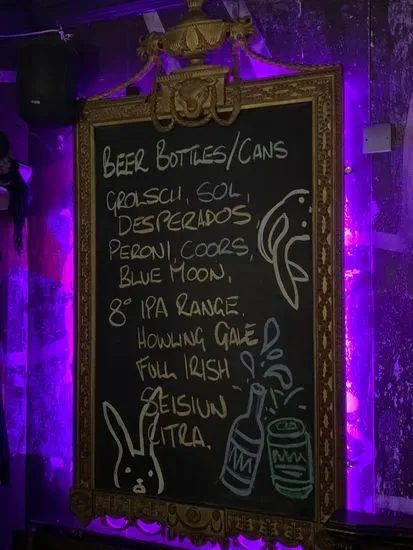 BEER BOTTLES/CANS
GROLSCH, SOL,
DESPERADOS
PERONI, COORS,
BLUE MOON,
8° IPA RANGE.
HOWLING GALE
FULL IRISH
SEISIUN
CITRA.